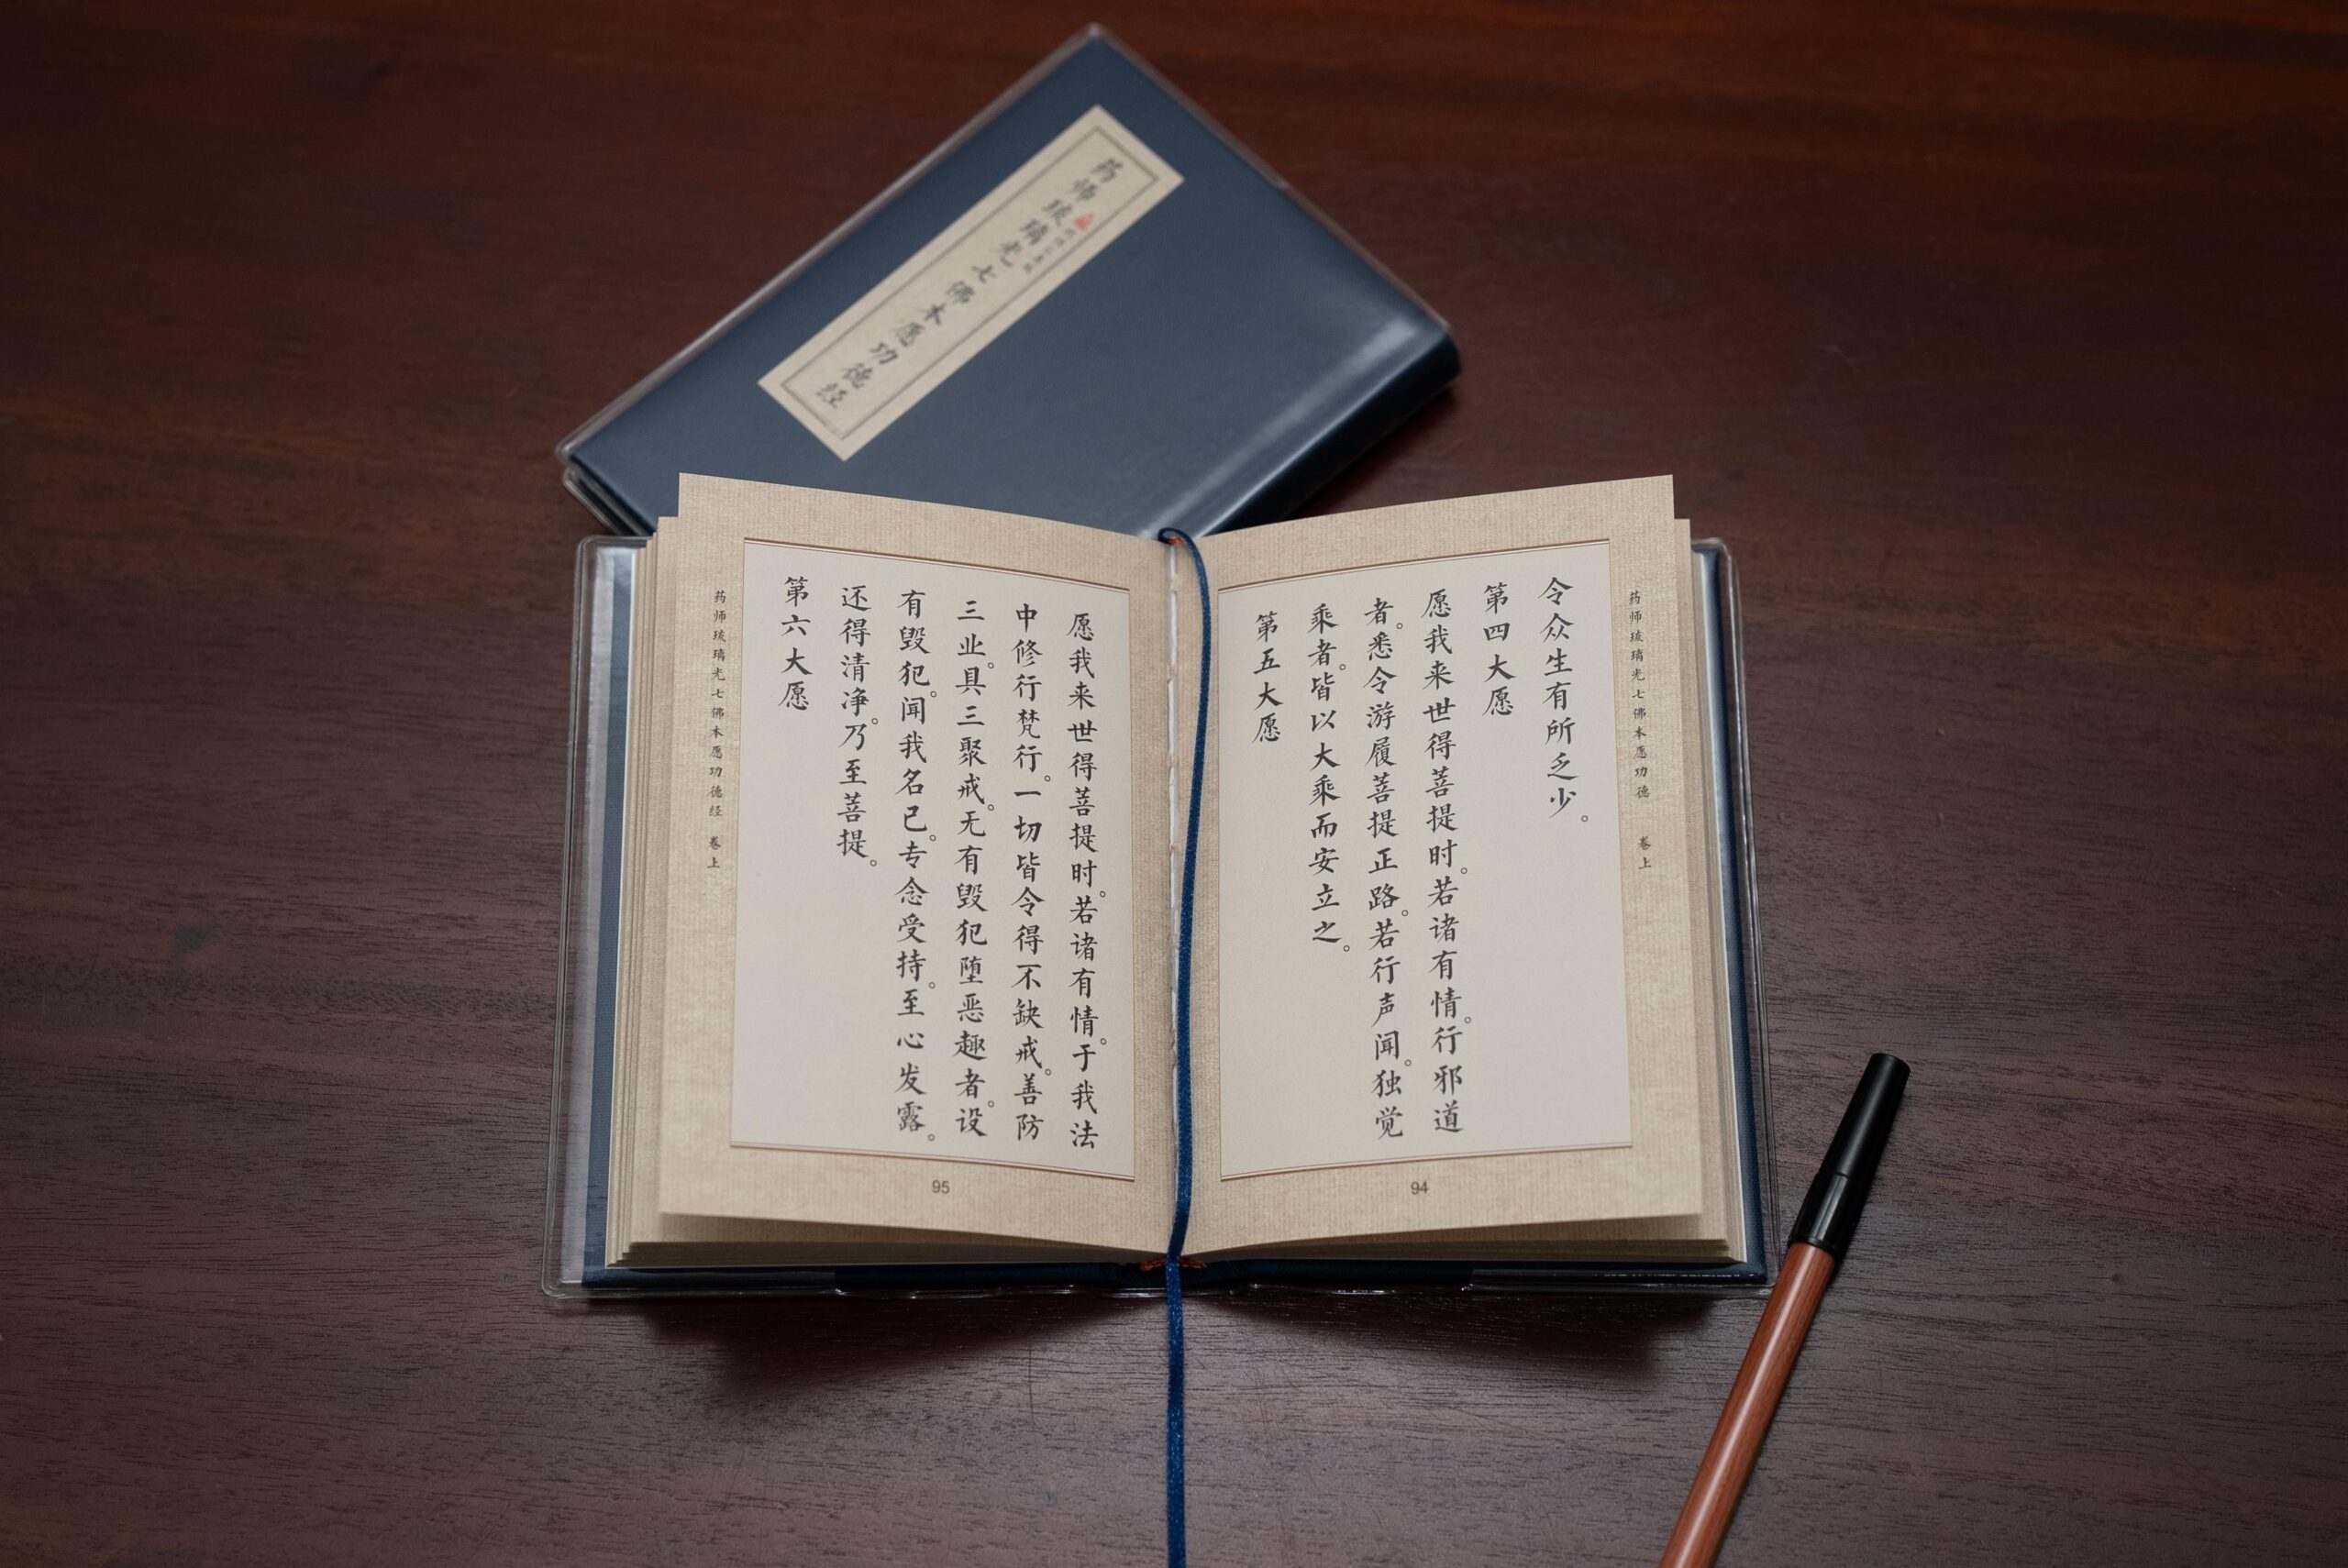 药师琉璃光七佛本愿功德经
药师琉璃光七佛本愿功德 卷上
令众生有所乏少。
第四大愿
愿我来世得菩提时。若诸有情。行邪道
者。悉令游履菩提正路。若行声闻。独觉
乘者。皆以大乘而安立之。
第五大愿
94
愿我来世得菩提时。若诸有情。于我法
中修行梵行。一切皆令得不缺戒。善防
三业。具三聚戒。无有毁犯堕恶趣者。设
有毁犯。闻我名已。专念受持。至心发露。
还得清净。乃至菩提。
第六大愿
药师琉璃光七佛本愿功德经 卷上
95